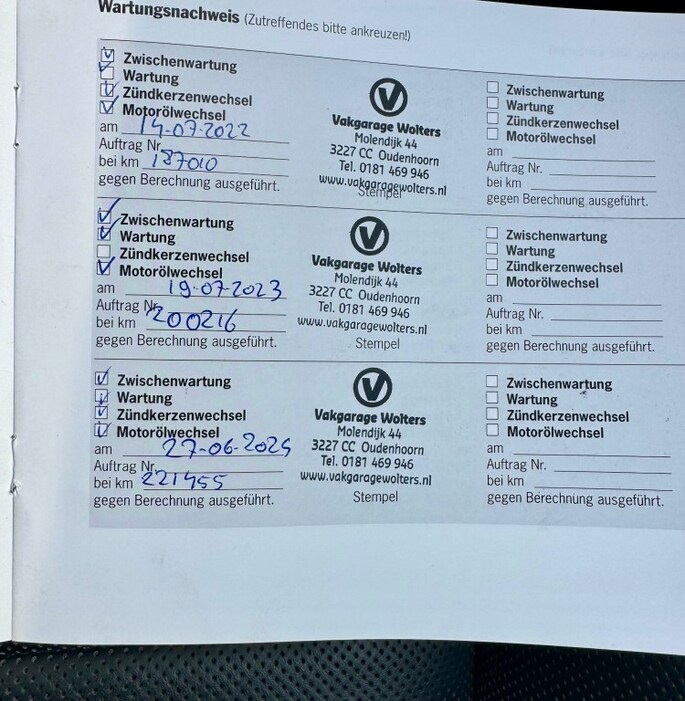 Wartungsnachweis (Zutreffendes bitte ankreuzen!)
Zwischenwartung
Wartung
Zündkerzenwechsel
Motorölwechsel
am 14-07-2022
Auftrag Nr.
bei km 187010
gegen Berechnung ausgeführt.
Vakgarage Wolters
Molendijk 44
3227 CC Oudenhoorn
Tel. 0181 469 946
www.vakgaragewolters.nl
Stempel
Zwischenwartung
Wartung
Zündkerzenwechsel
Motorölwechsel
am
Auftrag Nr.
bei km
gegen Berechnung ausgeführt.
Zwischenwartung
Wartung
Zündkerzenwechsel
Motorölwechsel
am 19-07-2023
Auftrag Nr.
bei km 200216
gegen Berechnung ausgeführt.
Vakgarage Wolters
Molendijk 44
3227 CC Oudenhoorn
Tel. 0181 469 946
www.vakgaragewolters.nl
Stempel
Zwischenwartung
Wartung
Zündkerzenwechsel
Motorölwechsel
am
Auftrag Nr.
bei km
gegen Berechnung ausgeführt.
Zwischenwartung
Wartung
Zündkerzenwechsel
Motorölwechsel
am
Auftrag Nr.
bei km 221455
gegen Berechnung ausgeführt.
Vakgarage Wolters
Molendijk 44
3227 CC Oudenhoorn
Tel. 0181 469 946
www.vakgaragewolters.nl
Stempel
Zwischenwartung
Wartung
Zündkerzenwechsel
Motorölwechsel
am
Auftrag Nr.
bei km
gegen Berechnung ausgeführt.